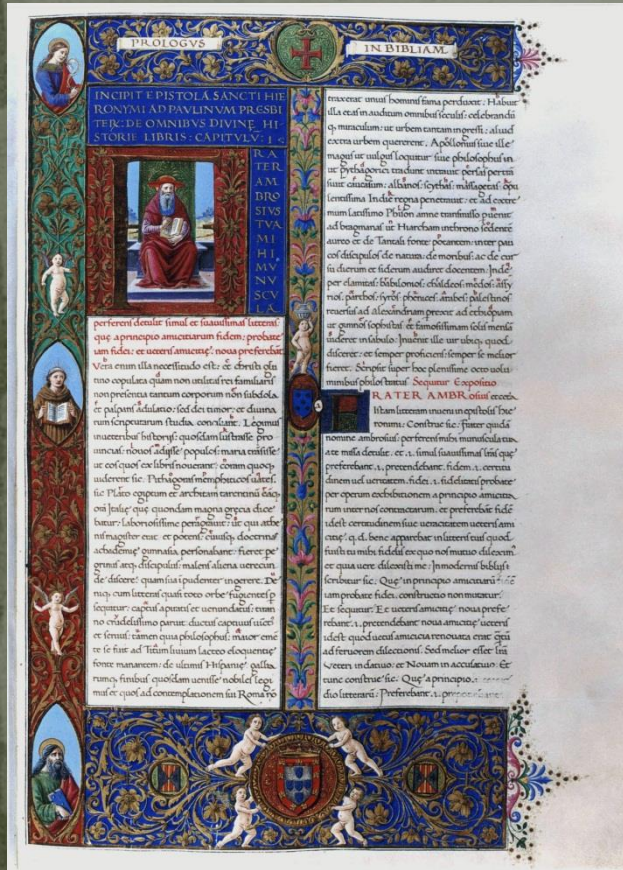 PROLOGVS
IN BIBLIAM
INCIPIT EPISTOLA SANCTI HIE
RONYMI AD PAVLINVM PRESBI
TER: DE OMNIBVS DIVINE HI
STORIE LIBRIS: CAPITVLV:
RA
TER
AM
BRO
SIVS
TVA
MI
HI
MV
NV
SCV
LA
perferens detulit simul et suavissimas litteras:
que a principio amicitiarum fidem: probate
iam fidei: et veteris amicitie: noua preferebāt
Vera enim illa necessitudo est: et christi glu
tino copulata quam non utilitas rei familiaris
non presentia tantum corporum non subdola
et palpans adulatio: sed dei timor: et diuina
rum scripturarum studia conciliant. Legimus
in ueteribus historijs: quosdam lustrasse pro
uincias: nouos adijsse populos: maria transisse
ut eos quos ex libris nouerant: coram quoq
uiderent sic. Pithagoras memphiticos uates:
sic Plato egiptum et architam tarentinū eāq
oram Italie, que quondam magna grecia dice
batur: laboriosissime peragrauit: ut qui athe
nis magister erat et potens: cuiusq doctrinas
achademie gimnasia, personabant: fieret pe
grinus atq discipulus: malens aliena verecun
de discere: quam sua ipudenter ingerere. De
niq cum litteras quasi toto orbe fugientes
sequitur: captus a piratis et uenundatus: tiran
no crudelissimo paruit: ductus captiuus uictus
et seruus: tamen quia philosophus: maior eme
te se fuit ad Titum liuium lacteo eloquentie
fonte manantem: de ultimis Hispanie gallia
rumq finibus quosdam uenisse nobiles legi
mus et quos ad contemplationem sui Roma nō
traxerat unius hominis fama perduxit: Habuit
illa etas inauditum omnibus seculis: celebrandū
q miraculum: ut urbem tantam ingressi: aliud
extra urbem quererent. Apollonius siue ille
magus ut uulgus loquitur siue philosophus: ut
pythagorici tradunt intrauit persas pertrā
siuit caucasum: albanos: scythas: massagetas: opu
lentissima Indie regna penetrauit: et ad extre
mum latissimo Phison amne transmisso puenit
ad bragmanas ut Hiarcham in throno sedente
aureo et de Tantali fonte potantem: inter pau
cos discipulos de natura: de moribus: ac de cur
su dierum et siderum audiret docentem: Inde
per elamitas: babilonios: chaldeos: medos: assy
rios: parthos: syros: phenices: arabes: palestinos
reuersus ad Alexandriam prexit ad ethiopiam
ut gimnosophistas et famosissimam solis mensā
uideret in sabulo. Inuenit ille uir ubiq, quod
disceret: et semper proficiens: semper se melior
fieret. Scripsit super hoc plenissime octo uolu
minibus philostratus Sequitur Expositio
RATER AMBROsius et cetera
nomine ambrosius: perferens mihi munuscula tua
preferebant .i. pretendebant. fidem .i. certitu
dinem uel ueritatem. fidei .i. fidelitatis probate
per operum exhibitionem a principio amicitia
rum inter nos contractarum. et preferebant fidē
idest certitudinem siue ueritatem ueteris ami
citie. q. d. bene apparebat in litteris tuis quod
fuisti tu mihi fidelis ex quo nos mutuo dileximus
et quia vere dilexisti me: In modernis biblijs
scribitur sic. Que in principio amicitiarum
iam probate fidei. constructio non mutatur.
Et sequitur. Et ueteris amicitie noua prefe
rebant .i. pretendebant noua amicitie ueteris
idest quod uetus amicicia renouata erat quā
ad feruorem dilectionis. Sed melior esset lrā
Veteri in datiuo: et Nouam in accusatiuo: Et
tunc construe sic. Que a principio
dio litterarum: Preferebant .i.